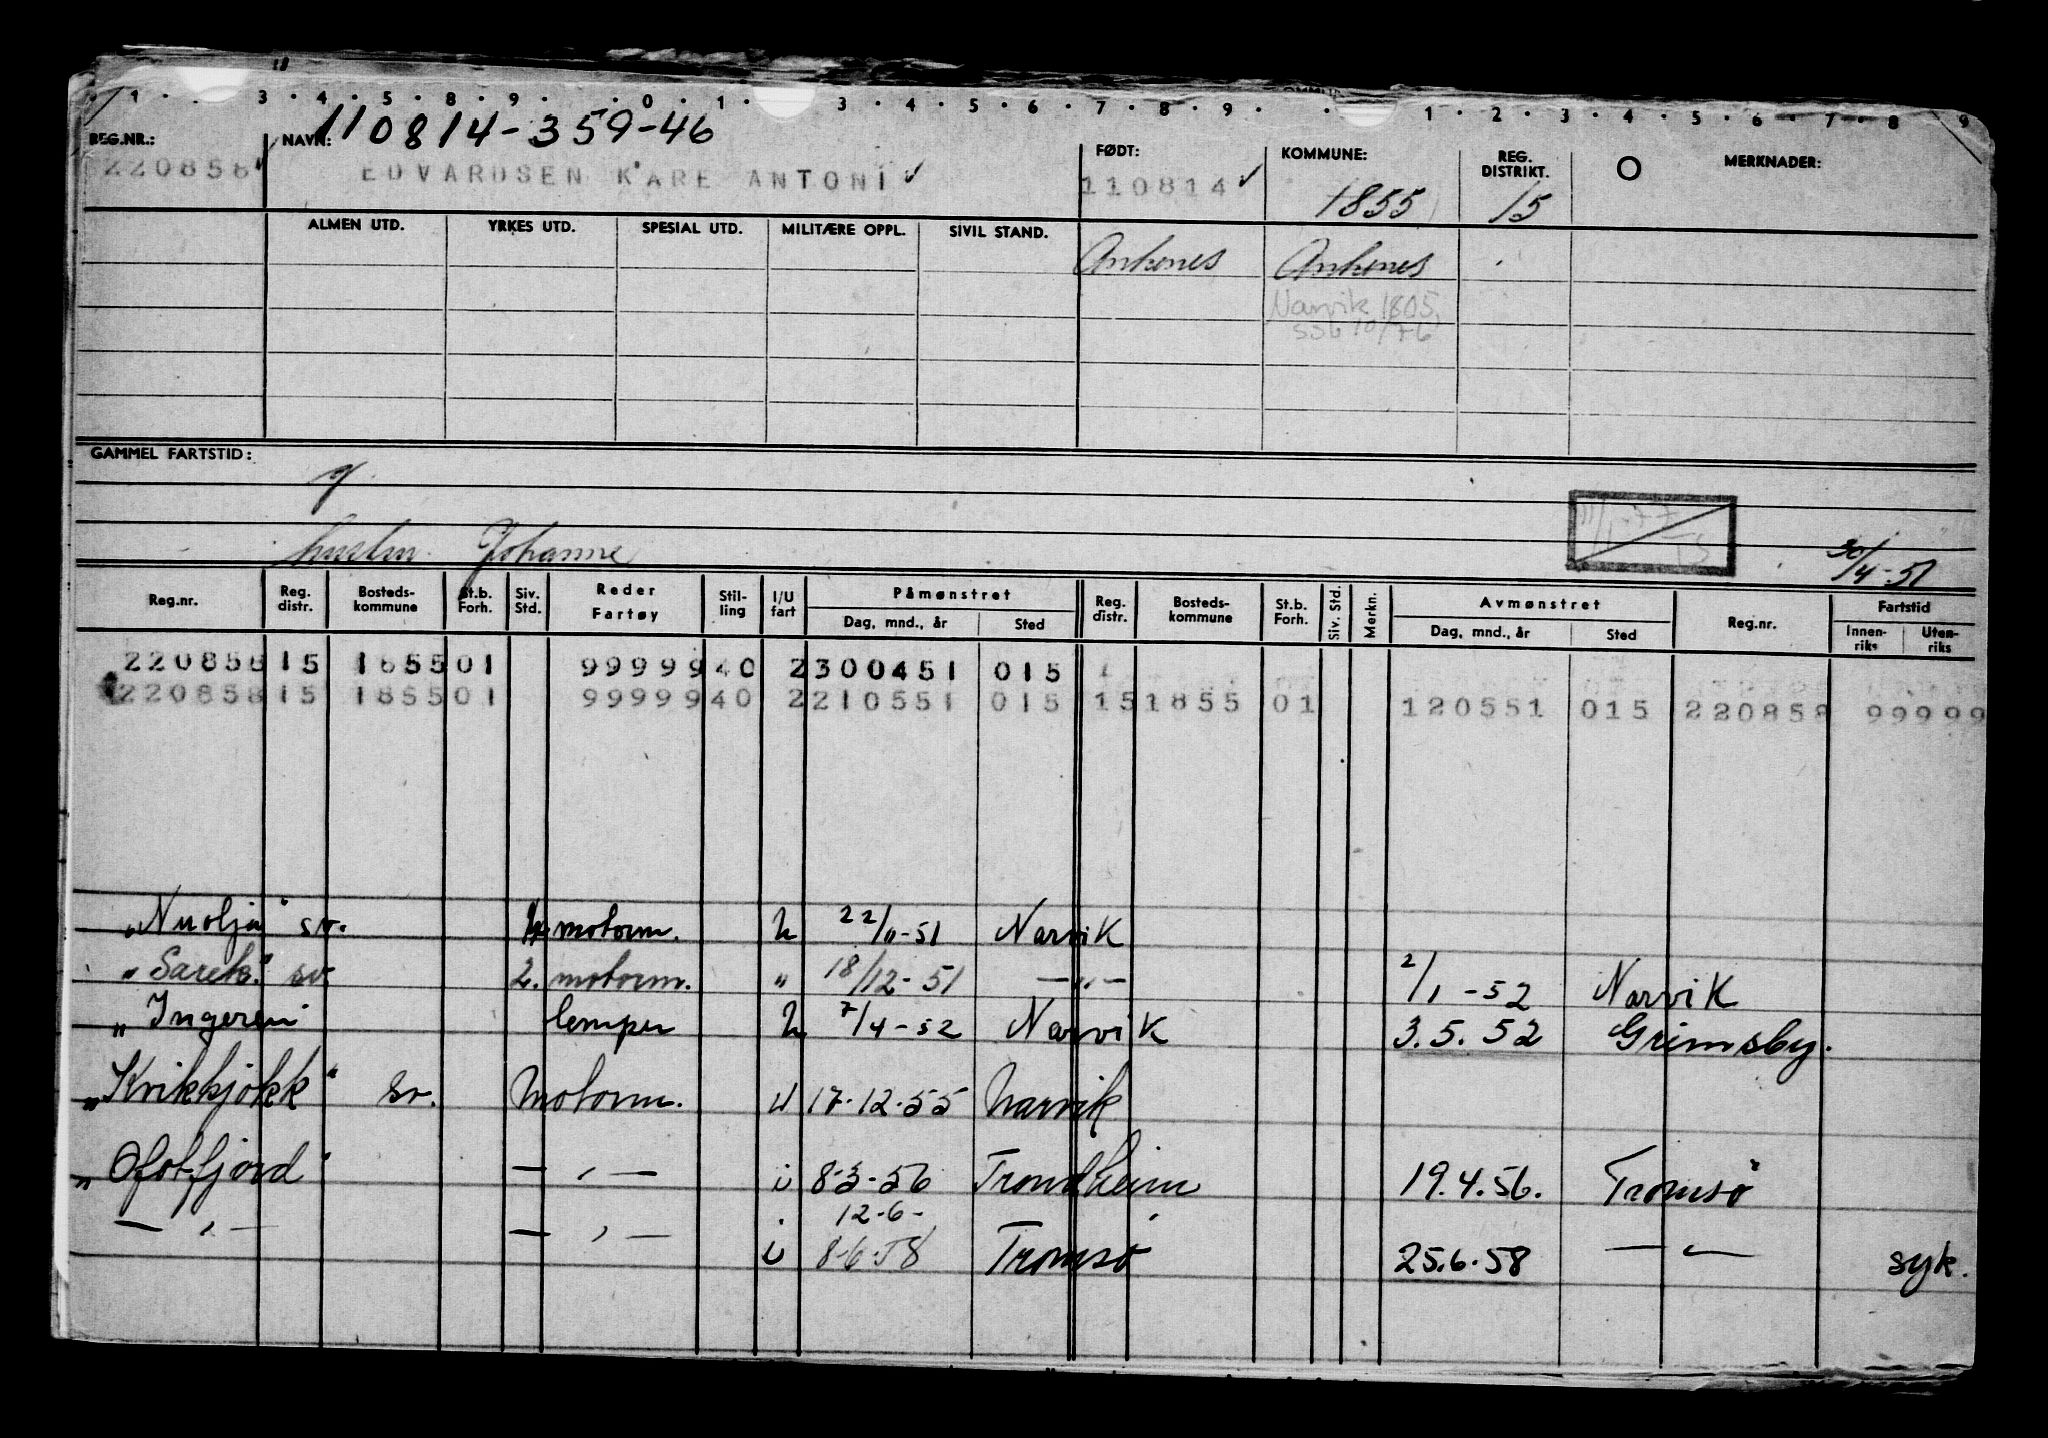 1 · · · 3 · 4 · 5 · 8 · 9 · · 0 · 1 · · 3 · 4 · 5 · 6 · 7 · 8 · 9 · · · 1 · 2 · 3 · 4 · 5 · 6 · 7 · 8 · 9
110814-359-46
REG.NR.: NAVN: FØDT: KOMMUNE: REG. DISTRIKT. MERKNADER:
220858 EDVARDSEN KÅRE ANTONI 110814 1855 15
ALMEN UTD. YRKES UTD. SPESIAL UTD. MILITÆRE OPPL. SIVIL STAND.
Ankenes Ankenes
Narvik 1805
SSB 10/76
GAMMEL FARTSTID:
hustru Johanne 30/4-51
Reg.nr. Reg. distr. Bosteds-kommune St.b. Forh. Siv. Std. Reder Fartøy Stil-ling I/U fart Påmønstret Reg. distr. Bosteds-kommune St.b. Forh. Siv. Std. Merkn. Avmønstret Reg.nr. Fartstid
Dag, mnd., år Sted Dag, mnd., år Sted Innen-riks Uten-riks
220858 15 1855 01 99999 40 2 300451 015
220858 15 1855 01 99999 40 2 210551 015 15 1855 01 120551 015 220858 99999
"Nuolja" sv. motorm. U 22/11-51 Narvik
"Sarek" sv. 2. motorm. " 18/12-51 —"— 2/1-52 Narvik
"Ingeren" lemper U 7/4-52 Narvik 3.5.52 Grimsby.
"Kvikkjokk" sv. Motorm. U 17-12-55 Narvik
"Ofotfjord" —"— U 8-3-56 Trondheim 19.4.56. Tromsø
—"— —"— 12-6-
U 8-6-58 Tromsø 25.6.58 —"— syk.